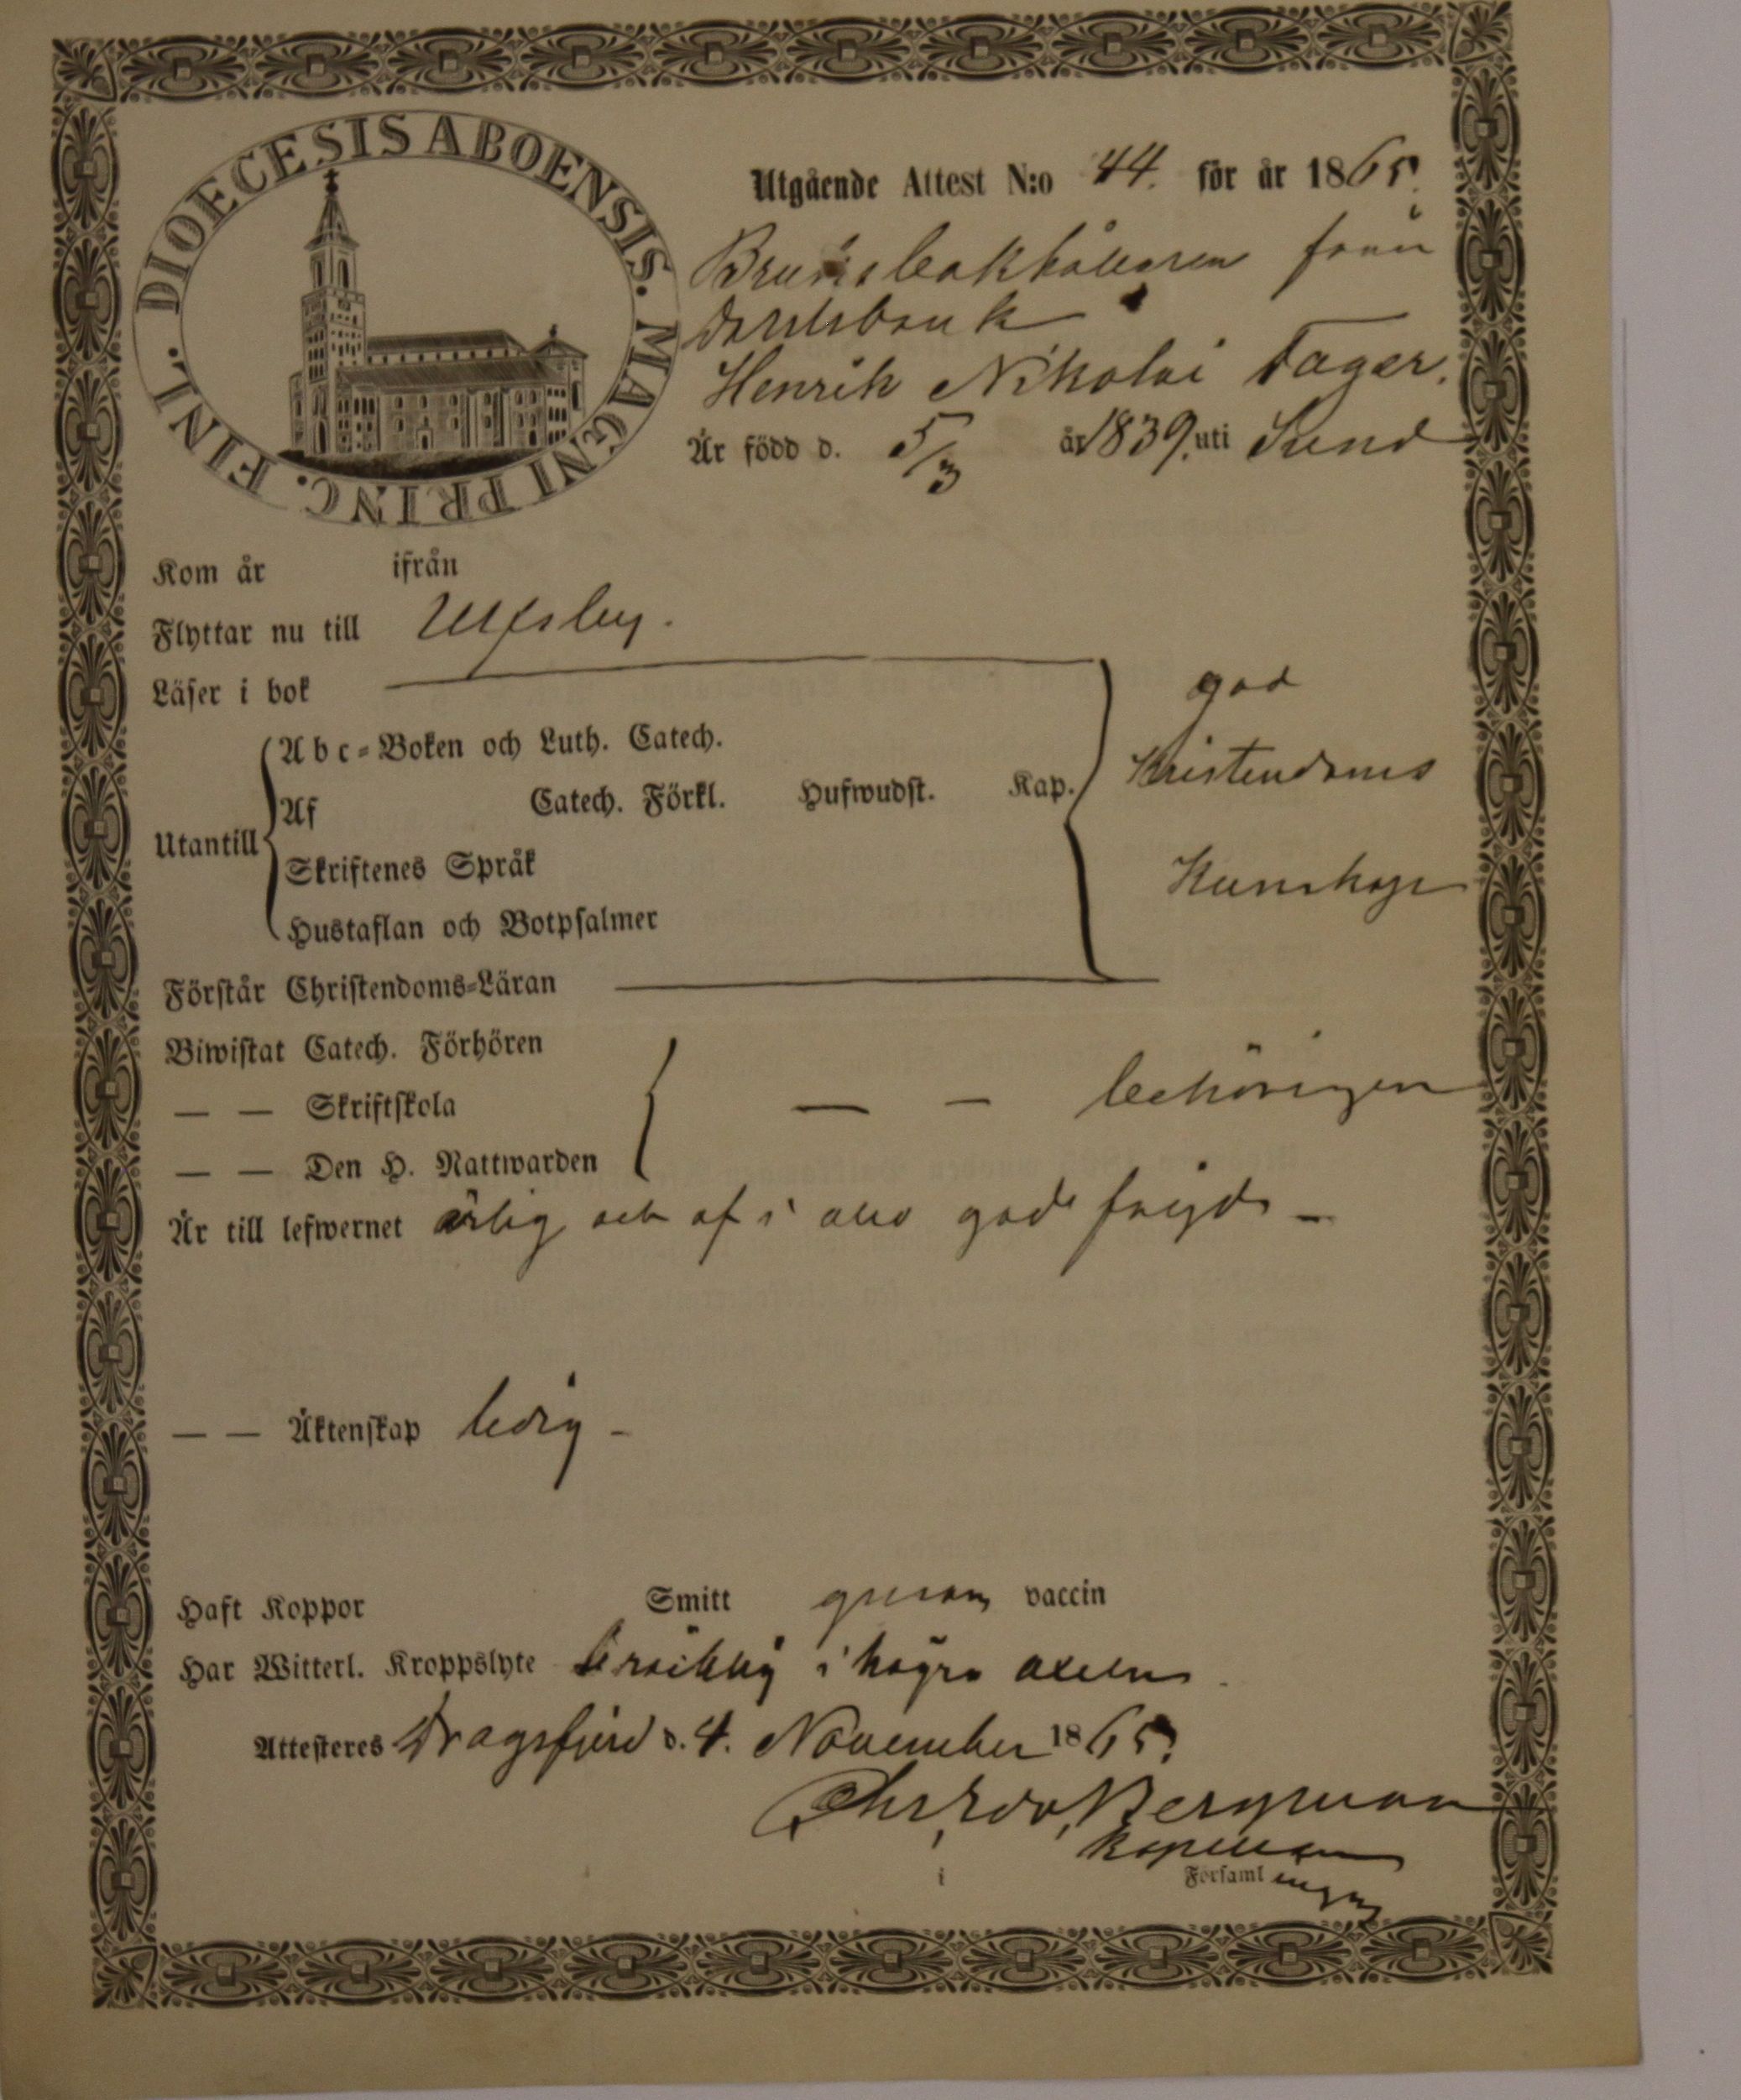 DIOECESIS ABOENSIS. MAGNI PRINC. FINL.
Utgående Attest N:o 44. för år 1865.
Bruksbokhållaren från
Dalsbruk
Henrik Nikolai Fager.
Är född d. 5/3 år 1839. uti Sund
Kom år ifrån
Flyttar nu till Ulfsby.
Läser i bok
god
Abc-Boken och Luth. Catech.
Kristendoms
Af Catech. Förkl. Hufwudst. Kap.
Utantill
Skriftenes Språk
Kunskap
Hustaflan och Botpsalmer
Förstår Christendoms-Läran
Biwistat Catech. Förhören
— — Skriftskola — — behörigen
— — Den H. Nattwarden
Är till lefwernet ärlig och af i allo god frejd —
— — Äktenskap ledig —
Haft Koppor Smitt genom vaccin
Har Witterl. Kroppslyte bräcklig i högra axeln.
Attesteres Dragsfjerd d. 4. November 1865.
Chr. Edv. Bergman
Kapellan
i Församlingen